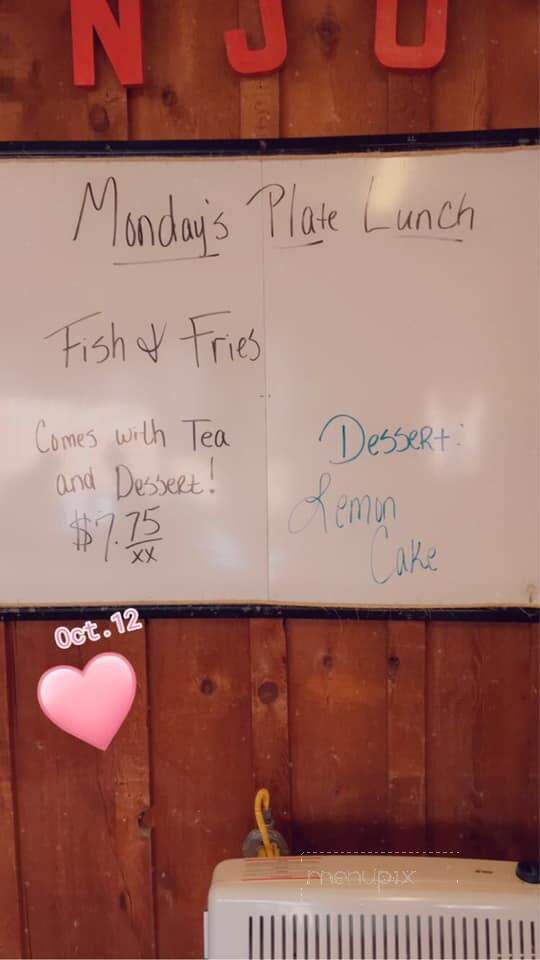 NJO
Monday's Plate Lunch
Fish & Fries
Comes with Tea
and Dessert!
$7.75
xx
Dessert:
Lemon
Cake
Oct.12
menupix